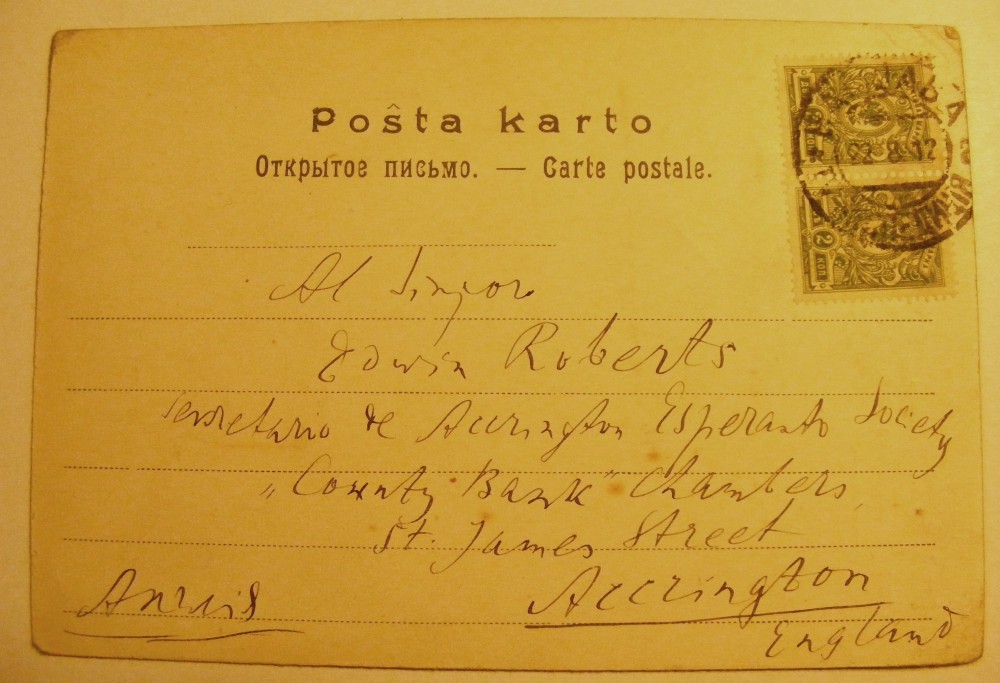 Poŝta karto
Открытое письмо. — Carte postale.
Al Sinjoro
Edwin Roberts
Sekretario de Accrington Esperanto Society
„County Bank" Chambers
St. James Street
Accrington
England
8 12
2 КОП